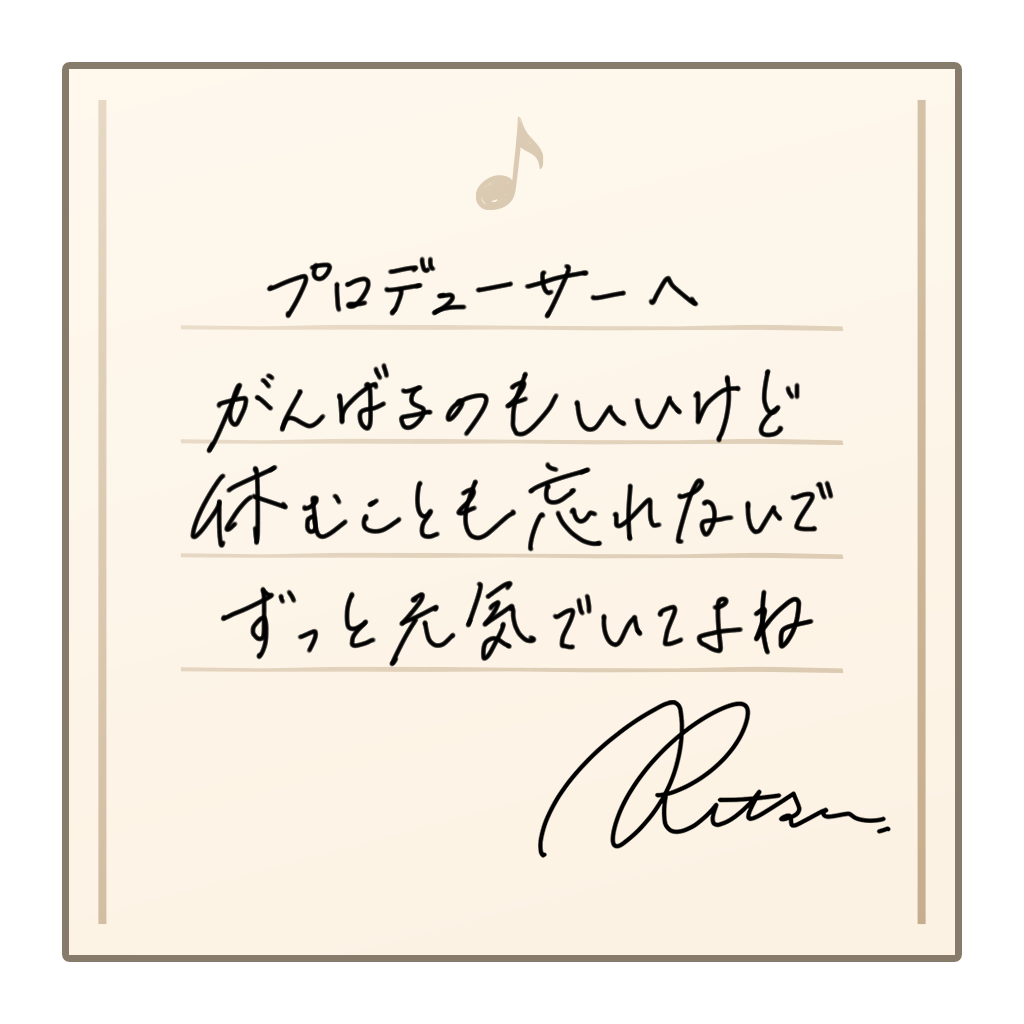 プロデューサーへ
がんばるのもいいけど
休むことも忘れないで
ずっと元気でいてよね
Ritsu.